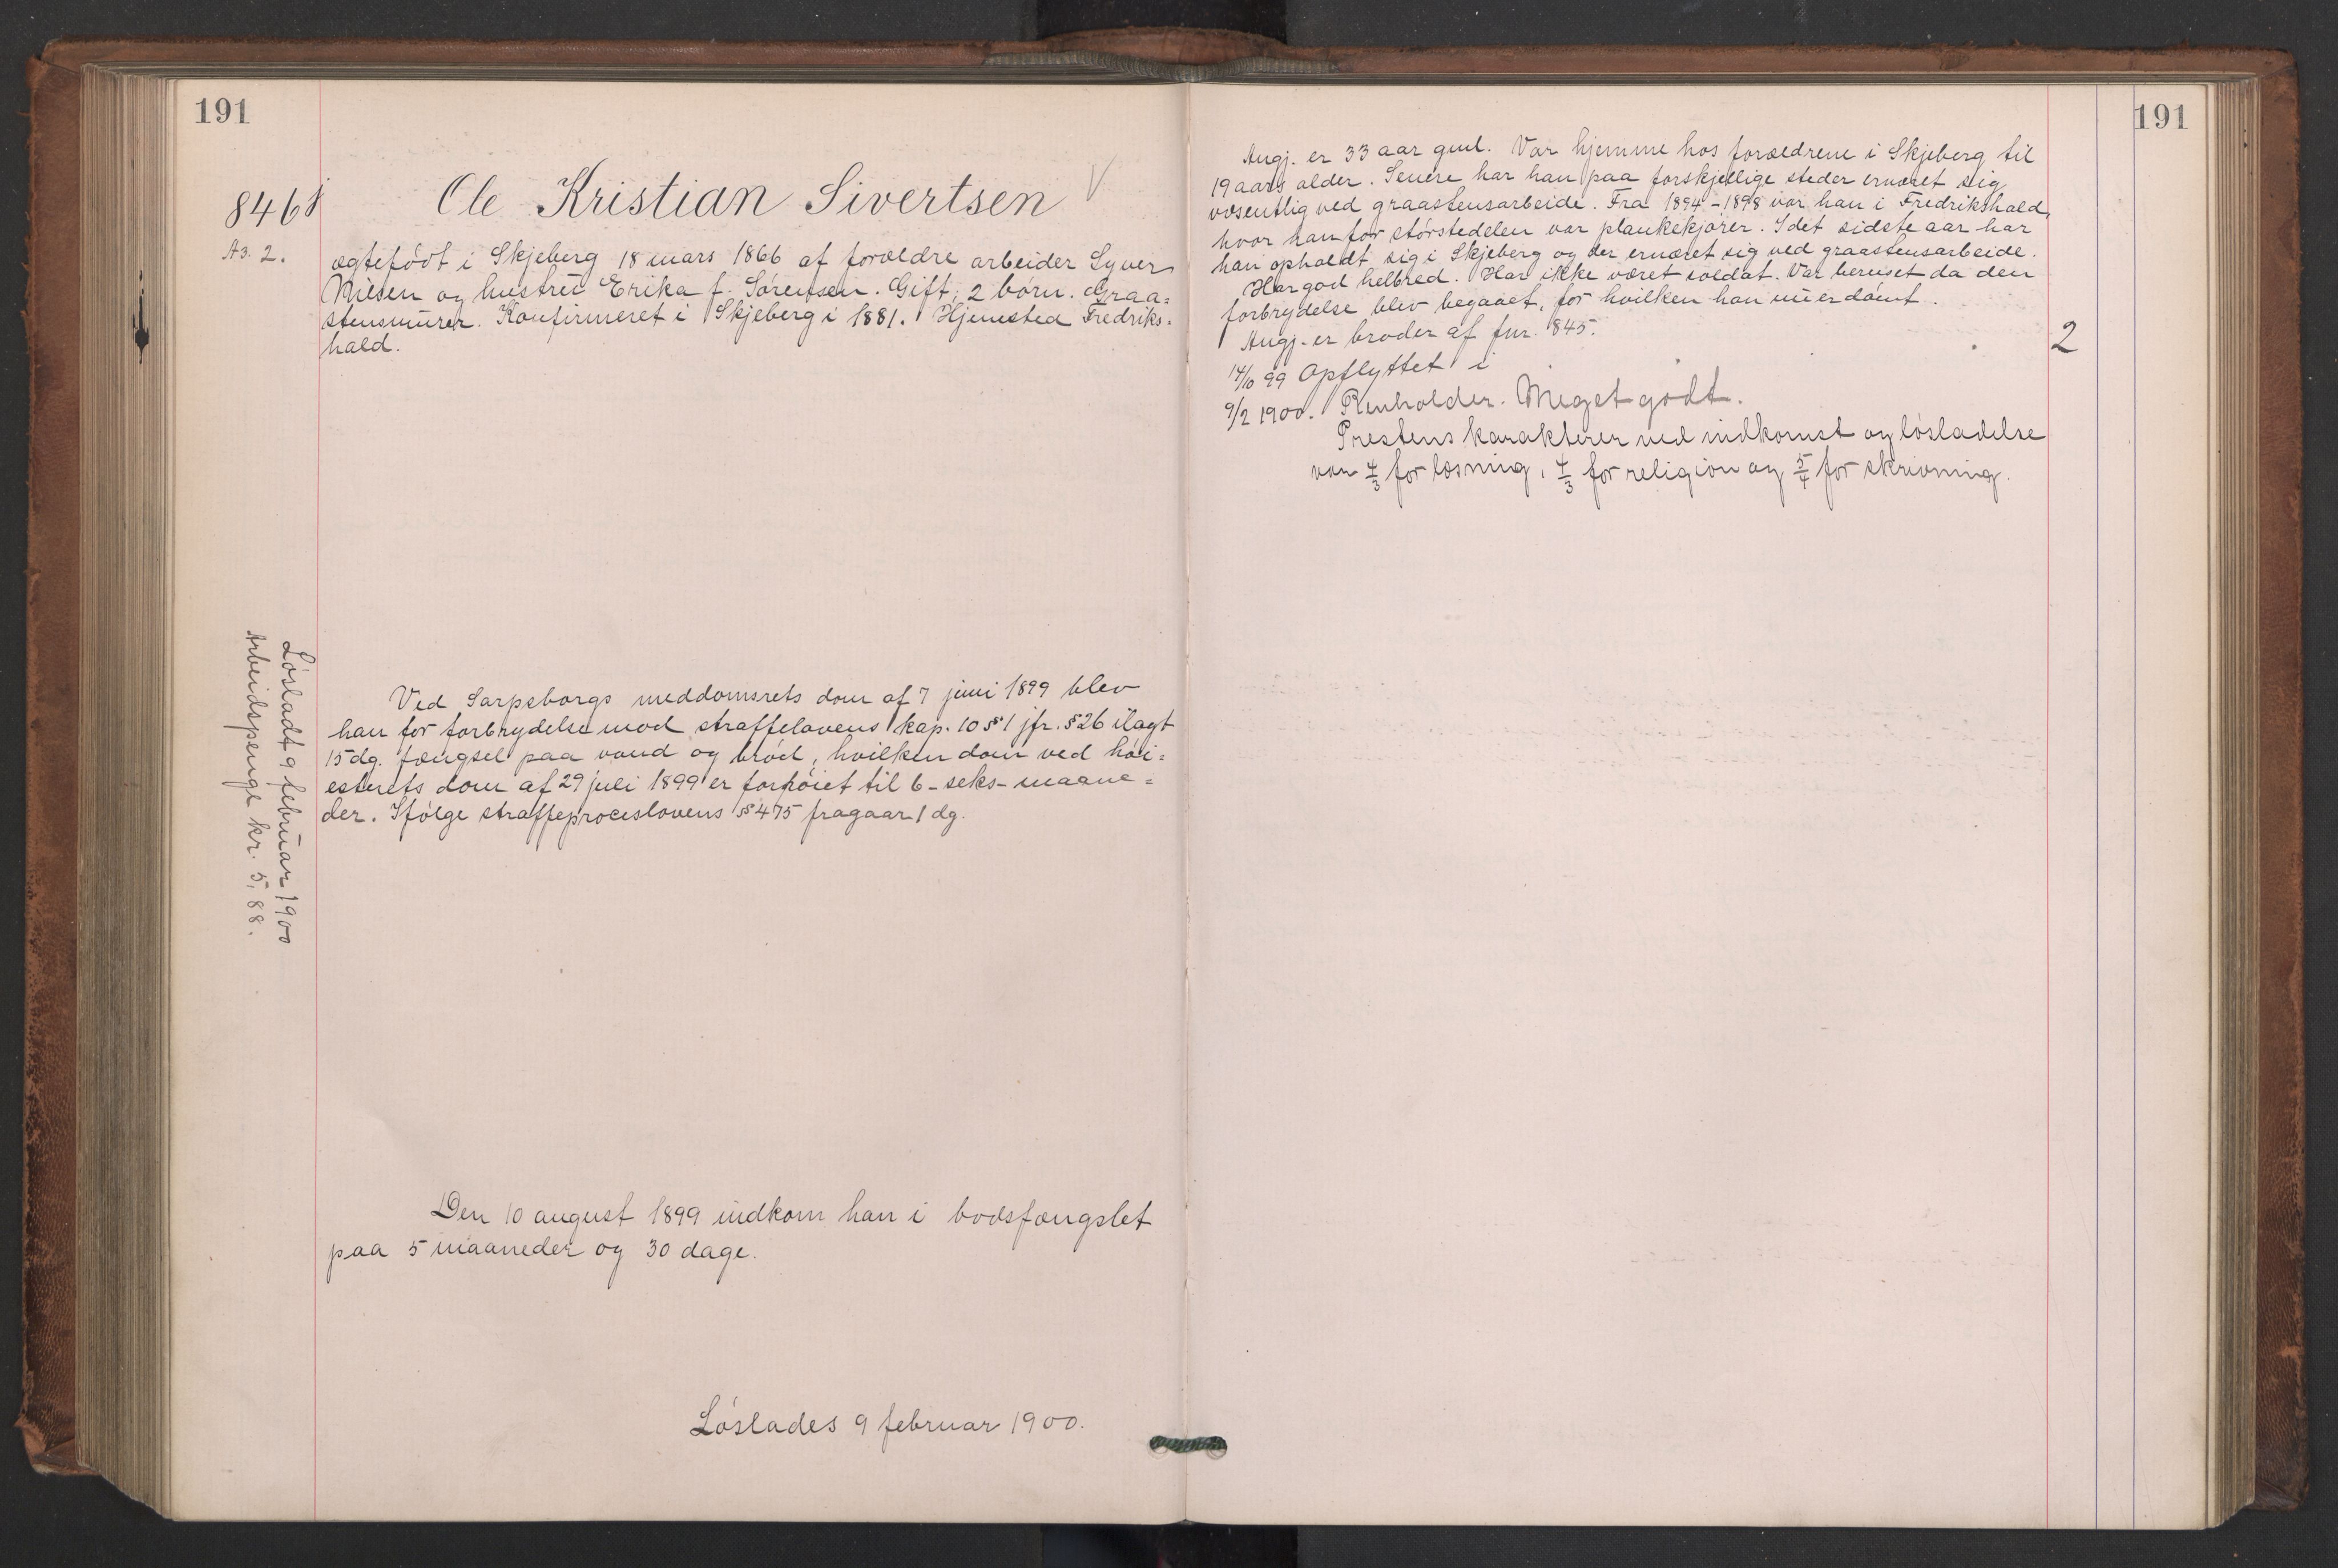 191
846
A3. 2.
Ole Kristian Sivertsen
ægtefødt i Skjeberg 18 mars 1866 af forældre arbeider Syver
Nilsen og hustru Erika f. Sørensen. Gift; 2 børn. Graa=
stensmurer. Konfirmeret i Skjeberg i 1881. Hjemsted Fredriks=
hald.
Løsladt 9 februar 1900
Arbeidspenge kr. 5,88.
Ved Sarpsborgs meddomsrets dom af 7 juni 1899 blev
han for forbrydelse mod straffelovens kap. 10 § 1 jfr. § 26 ilagt
15 dg. fængsel paa vand og brød, hvilken dom ved høi=
esterets dom af 29 juli 1899 er forhøiet til 6 - seks - maane=
der. Ifølge straffeproceslovens § 475 fragaar 1 dg.
Den 10 august 1899 indkom han i bodsfængslet
paa 5 maaneder og 30 dage.
Løslades 9 februar 1900.
191
Angj. er 33 aar gml. Var hjemme hos forældrene i Skjeberg til
19 aars alder. Senere har han paa forskjellige steder ernæret sig
væsentlig ved graastensarbeide. Fra 1894 - 1898 var han i Fredrikshald,
hvor han for størstedelen var plankekjører. I det sidste aar har
han opholdt sig i Skjeberg og der ernæret sig ved graastensarbeide.
Har god helbred. Har ikke været soldat. Var beruset da den
forbrydelse blev begaaet, for hvilken han nu er dømt.
Angj. er broder af fnr. 845.
2
14/10 99 Opflyttet i
9/2 1900. Renholder. Meget godt.
Prestens karakterer ved indkomst og løsladelse
var 4/3 for læsning, 4/3 for religion og 5/4 for skrivning.